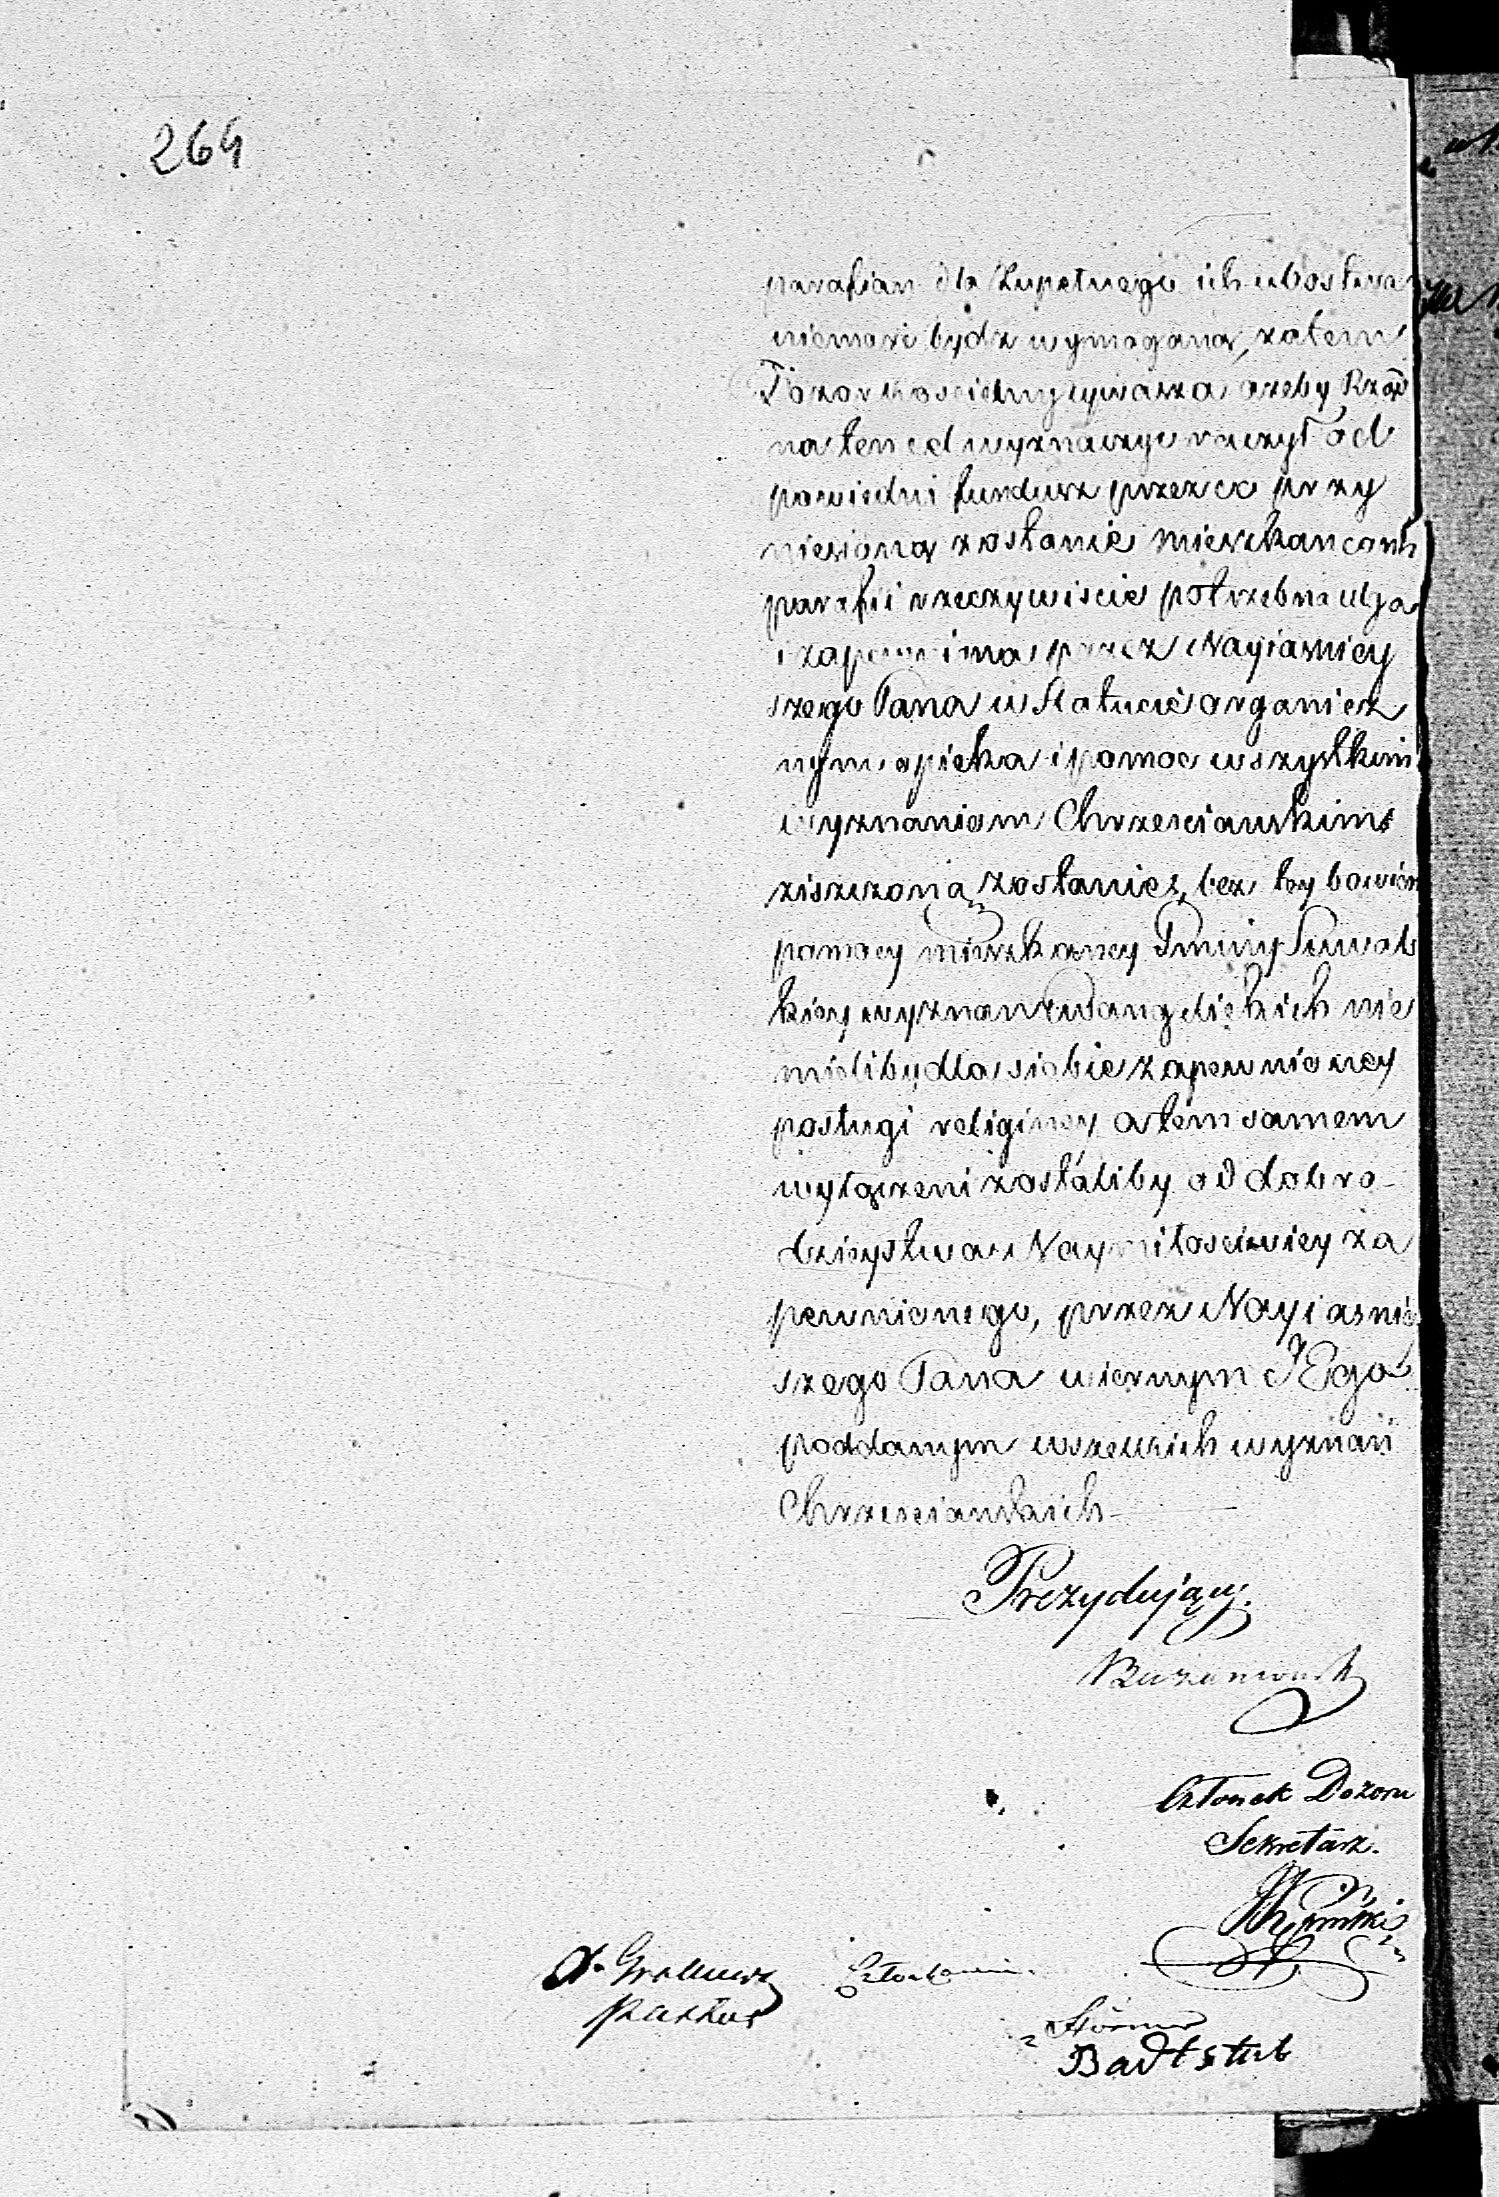 264
parafian dla zupełnego ich ubostwa
niemoże bydz wymaganą, zatem
Dozor Kościelny uprasza ażeby Rząd
na ten cel wyznaczyć raczył od
powiedni fundusz przez co przy
niesioną zostanie mieszkancom
parafii rzeczywiscie potrzebna ulga
i zapewniona przez Nayiasniey
szego Pana w Statucie organicz
nym opieka i pomoc wszystkim
wyznaniom Chrzesciańskim
ziszczoną zostanie, bez tey bowiem
pomocy mieszkancy Gminy Suwals
kiey wyznań Ewangelickich nie
mieliby dla siebie zapewnioney
posługi religiney a tem samem
wyłączeni zostaliby od dobro-
dzieystwa Naymiłościwiey za
pewnionego, przez Nayiasniey
szego Pana wiernym JEgo
poddanym wszelkich wyznań
Chrzesciańskich
Prezydujący.
Członek Dozoru
Sekretarz.
Pastor
Członkowie.